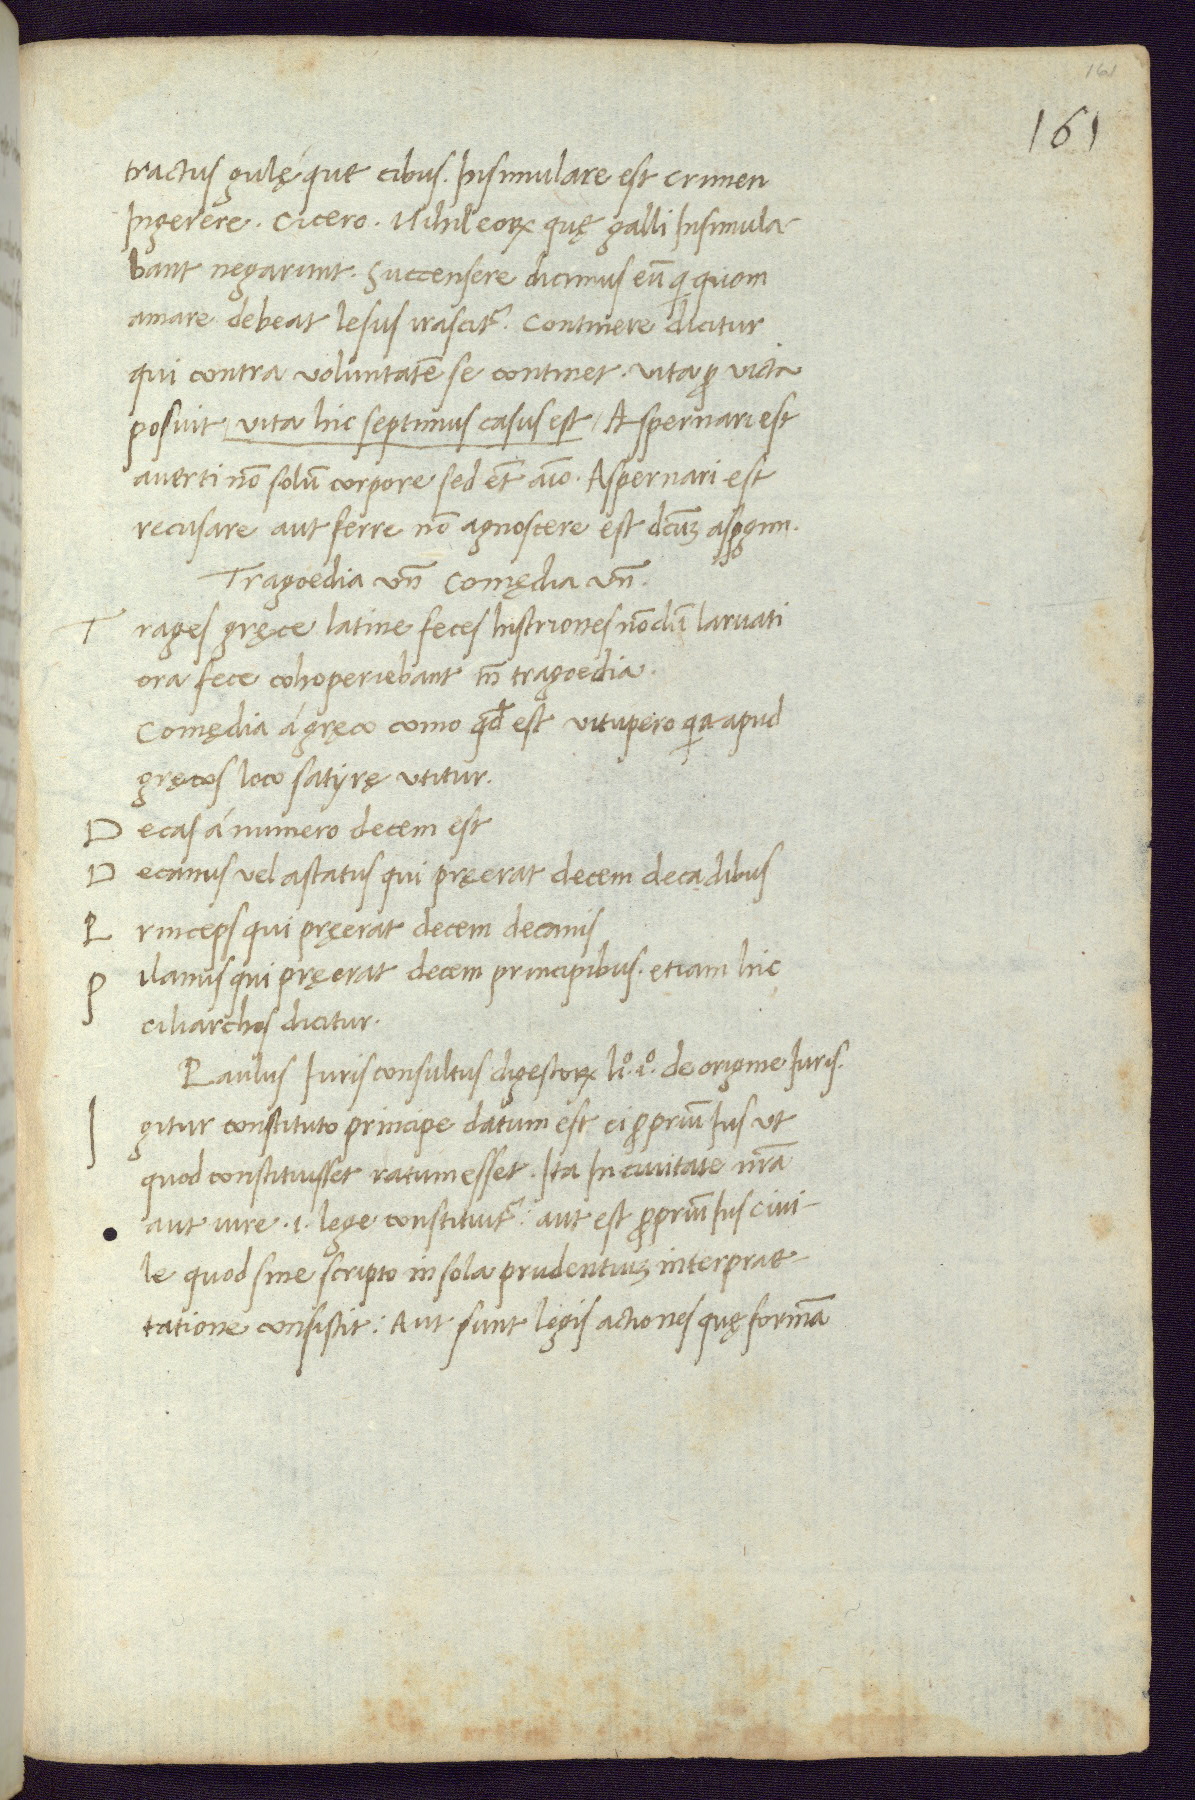 161
161
tractus gulę́ que cibus. Insimulare est crimen
Ingerere. Cicero. Nihil eoꝝ quę galli Insimula-
bant negarunt. Succensere dicimus eū qͥ quom
amare debeat lesus irascit᷑. Continere dicitur
qui contra voluntatē se continet. vita ꝓ victa
posuit, vita hic septimus casus est, Aspernari est
auerti nō solū corpore sed ēt aīo. Aspernari est
recusare aut ferre nō agnoscere est dcūꝫ
Tragoedia vn̄ Comędia vn̄.
Trages gręce latine feces histriones nōdū laruati
ora fece cohoperiebant īn tragoedia.
Comędia á gręco como qd̄ est vitupero qꝛ apud
gręcos loco satyrę vtitur.
Decas á numero decem est
Decanus vel astatus qui pręerat decem decadibus
Princeps qui pręerat decem decanis
Pilanus qui pręerat decem principibus. etiam hic
ciliarchos dicitur.
Paulus Iurisconsultus digestoꝝ li°. i°. de origine Iuris.
Igitur constituto principe datum est ei ꝓpriū Ius vt
quod constituisset ratum esset. Ita In ciuitate nr̄a
aut iure .i. lege constituit᷑: aut est ꝓpriū Ius ciui-
le quod sine scripto in sola prudentiuꝫ interprae-
tatione consistit: Aut sunt legis actiones quę formā